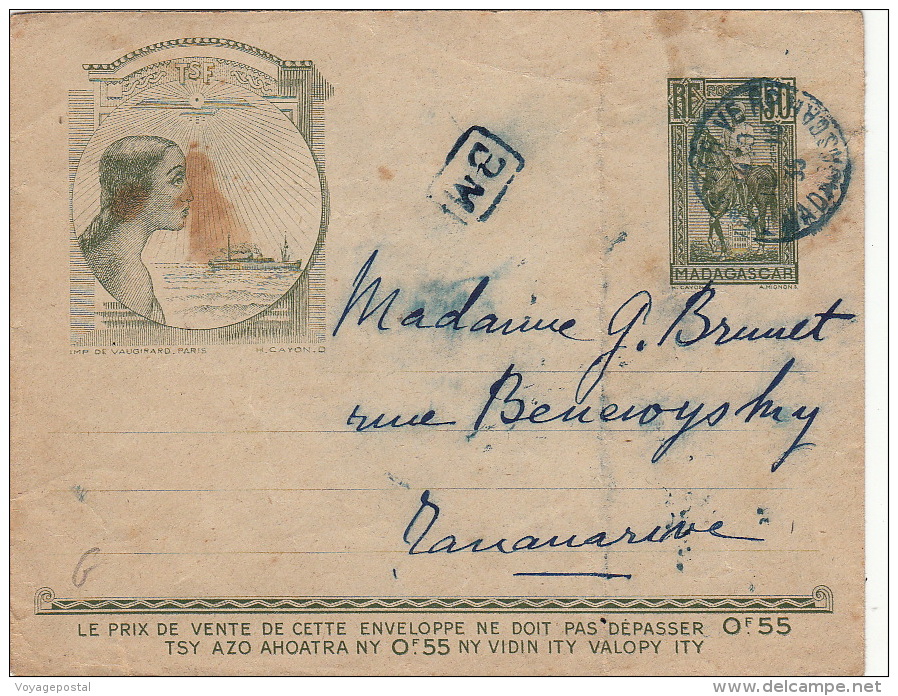 TSF
RF POSTES 50
MADAGASCAR
H. CAYON A. MIGNON S.
IMP DE VAUGIRARD. PARIS H. CAYON. D
BM
MADAGASCAR
Madame G. Brunet
rue Benewoysky
Tananarive
6
LE PRIX DE VENTE DE CETTE ENVELOPPE NE DOIT PAS DÉPASSER 0F.55
TSY AZO AHOATRA NY 0F.55 NY VIDIN ITY VALOPY ITY
Voyagepostal
delcampe.net